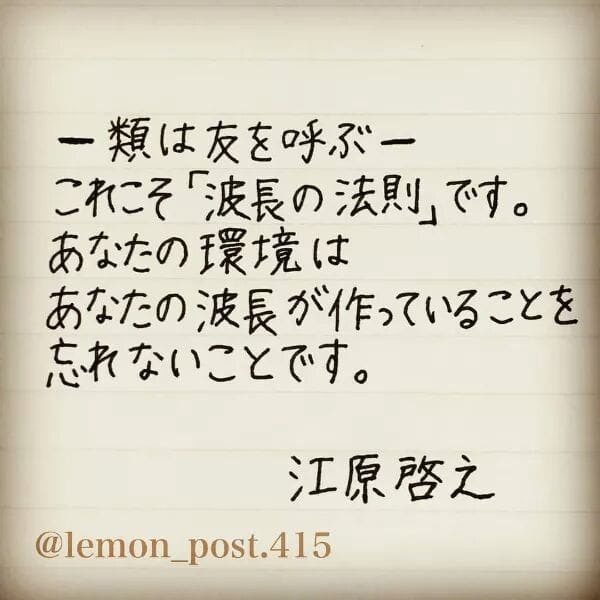 ー類は友を呼ぶー
これこそ「波長の法則」です。
あなたの環境は
あなたの波長が作っていることを
忘れないことです。
江原啓之
@lemon_post.415